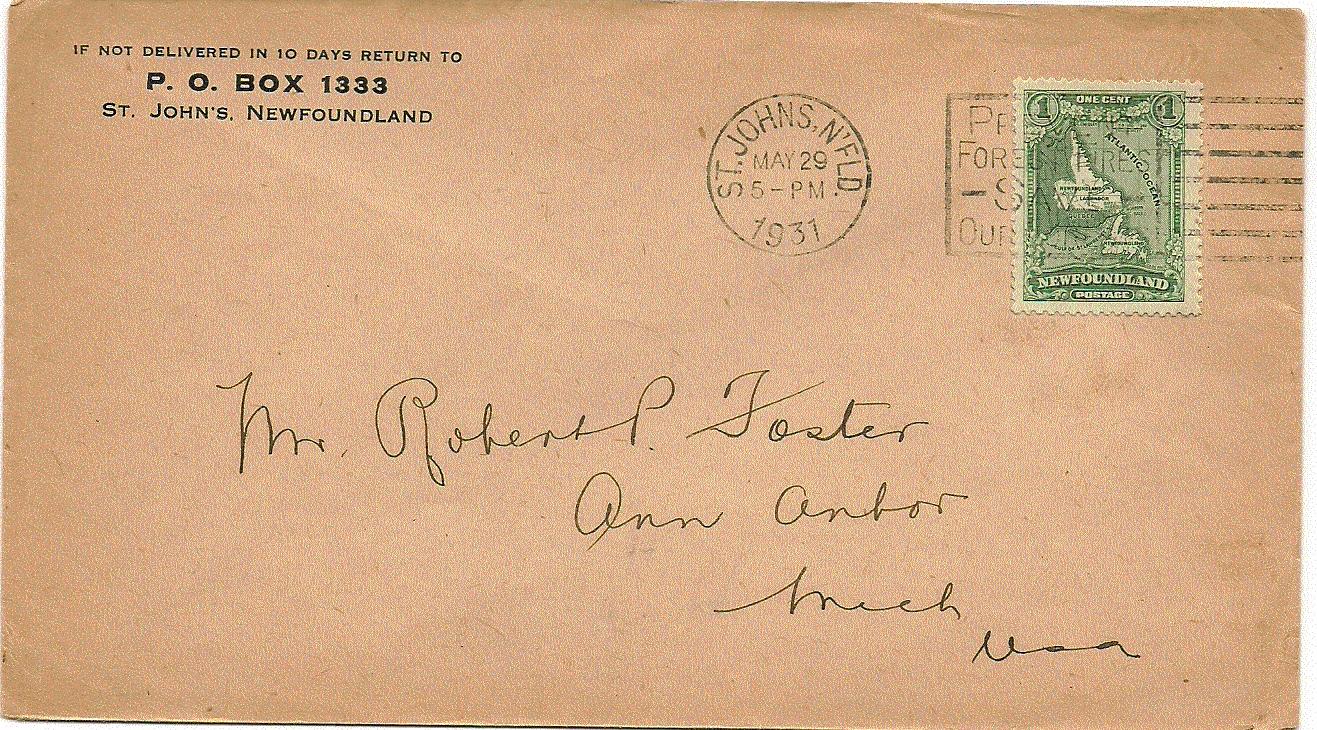 IF NOT DELIVERED IN 10 DAYS RETURN TO
P. O. BOX 1333
ST. JOHN'S, NEWFOUNDLAND
ST. JOHNS, N'FLD.
MAY 29
5-PM
1931
FOREST FIRES
OUR
1 ONE CENT 1
ATLANTIC OCEAN
NEWFOUNDLAND
LABRADOR
QUEBEC
NEWFOUNDLAND
NEWFOUNDLAND
POSTAGE
Mr. Robert P. Foster
Ann Arbor
Mich
USA